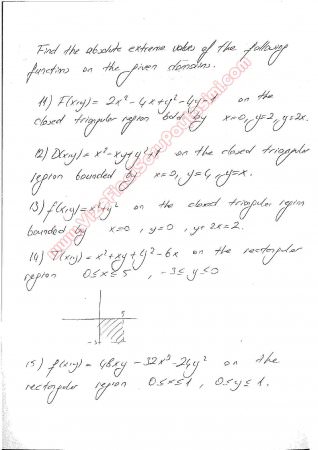 Find the absolute extreme values of the following
functions on the given domains.
11) F(x,y) = 2x² - 4x + y² - 4y + 1 on the
closed triangular region bdd by x=0, y=2, y=2x.
12) D(x,y) = x² - xy + y² + 1 on the closed triangular
region bounded by x=0, y=4, y=x.
13) f(x,y) = x² + y² on the closed triangular region
bounded by x=0, y=0, y+2x=2.
14) T(x,y) = x² + xy + y² - 6x on the rectangular
region 0≤x≤5, -3≤y≤0
5
-3
15) f(x,y) = 48xy - 32x³ - 24y² on the
rectangular region 0≤x≤1, 0≤y≤1.